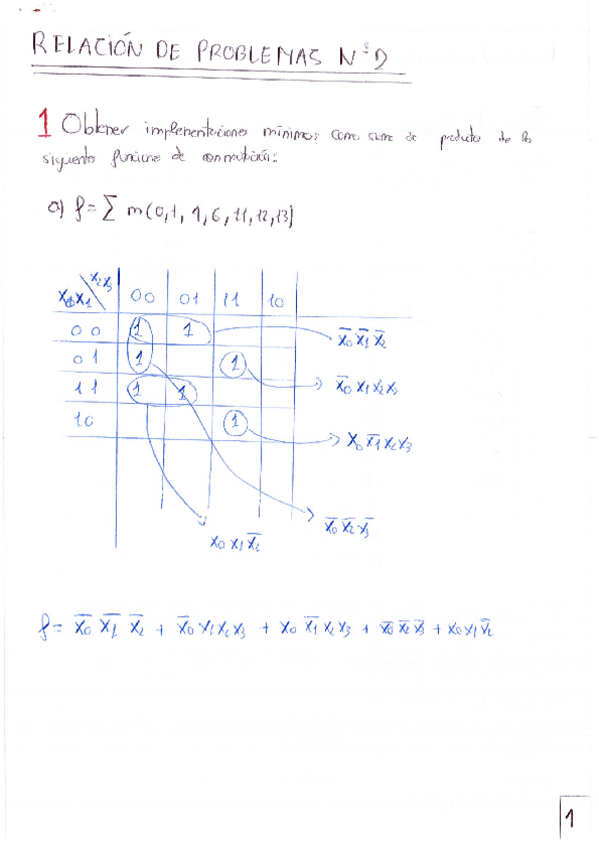 RELACIÓN DE PROBLEMAS Nº2
1 Obtener implementaciones mínimas como suma de productos de las
siguientes funciones de conmutación:
a) f = ∑ m(0,1,4,6,11,12,13)
x₂x₃
x₀x₁ 00 01 11 10
00 1 1 x̄₀ x̄₁ x̄₂
01 1 1 x̄₀ x₁ x₂ x₃
11 1 1
10 1 x₀ x̄₁ x₂ x₃
x̄₀ x̄₂ x̄₃
x₀ x₁ x̄₂
f = x̄₀ x̄₁ x̄₂ + x̄₀ x₁ x₂ x₃ + x₀ x̄₁ x₂ x₃ + x̄₀ x̄₂ x̄₃ + x₀ x₁ x̄₂
1